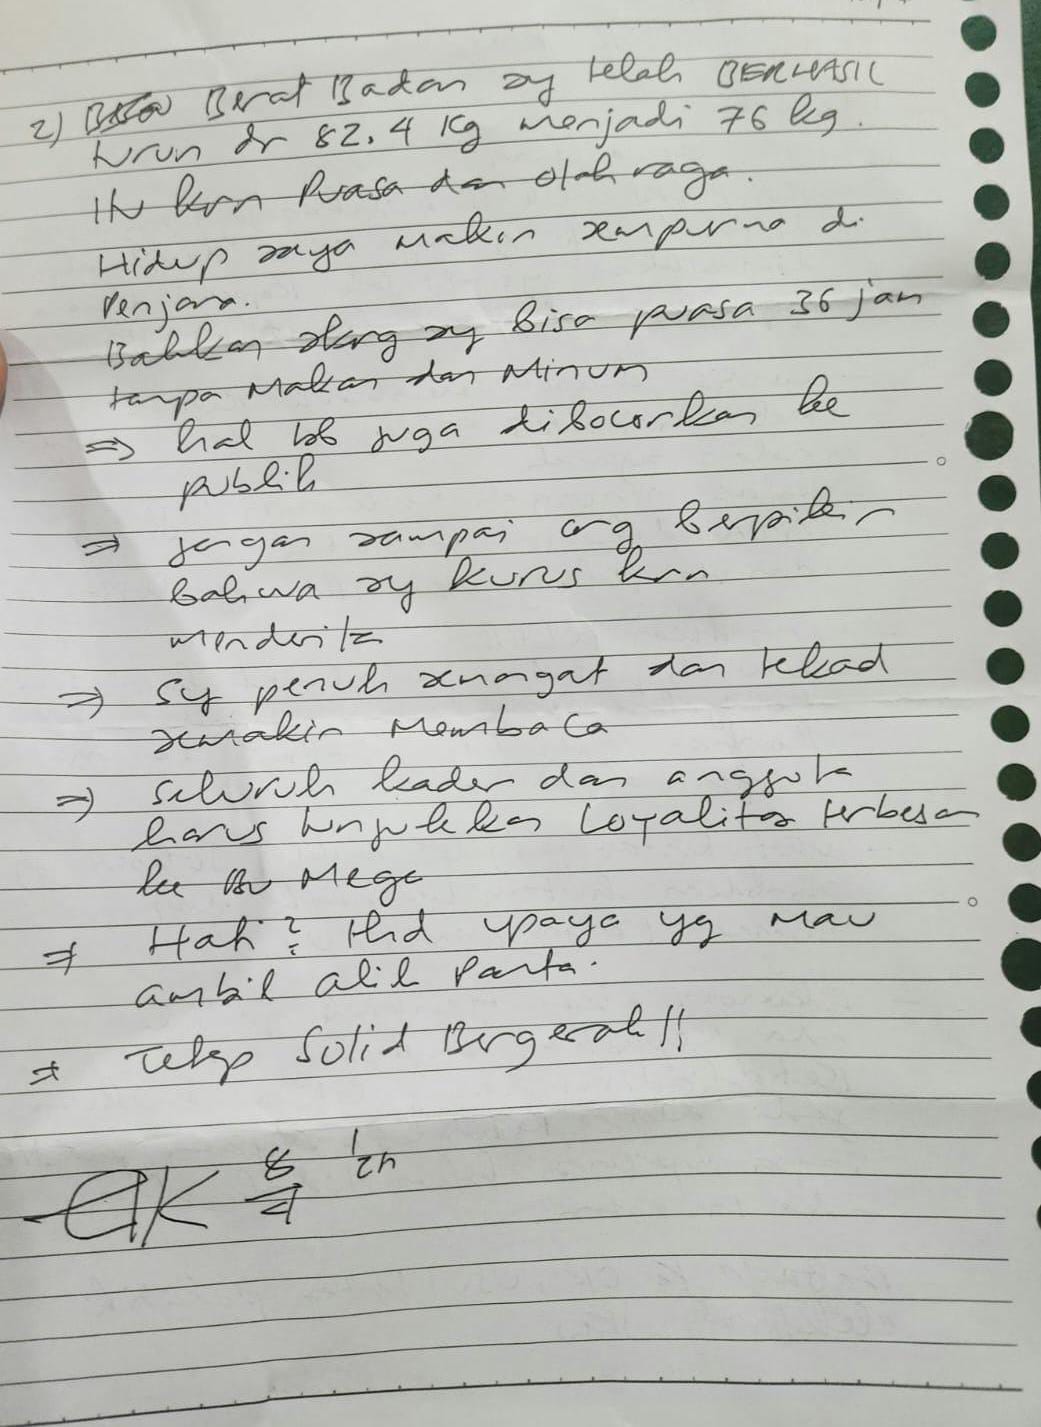 2) Berat Badan sy telah BERHASIL
turun dr 82.4 Kg menjadi 76 kg.
Itu krn Puasa dan olah raga.
Hidup saya makin sempurna di
Penjara.
Bahkan skrg sy bisa puasa 36 jam
tanpa Makan dan Minum
⇒ hal tsb juga dibocorkan ke
publik
⇒ jangan sampai org berpikir
bahwa sy kurus krn
menderita
⇒ Sy penuh semangat dan tekad
semakin Membaca
⇒ seluruh kader dan anggota
harus tunjukkan Loyalitas terbesar
ke Bu Mega
⇒ Hati2 thd upaya yg mau
ambil alih Partai.
⇒ Tetap Solid Bergerak!!